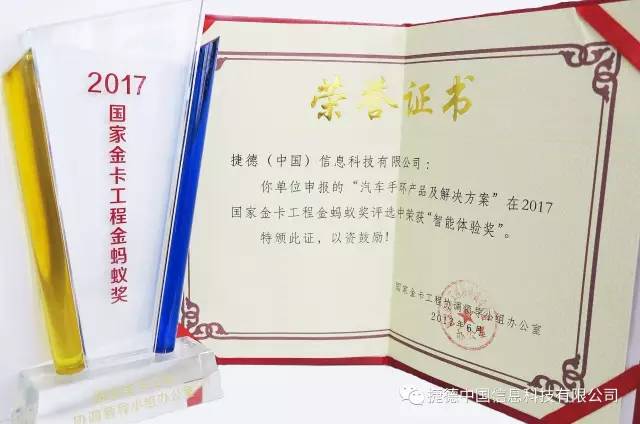 2017
国家金卡工程金蚂蚁奖
协调领导小组办公室
荣誉证书
捷德（中国）信息科技有限公司：
你单位申报的“汽车手环产品及解决方案”在2017
国家金卡工程金蚂蚁奖评选中荣获“智能体验奖”。
特颁此证，以资鼓励！
国家金卡工程协调领导小组办公室
2017年6月
捷德中国信息科技有限公司